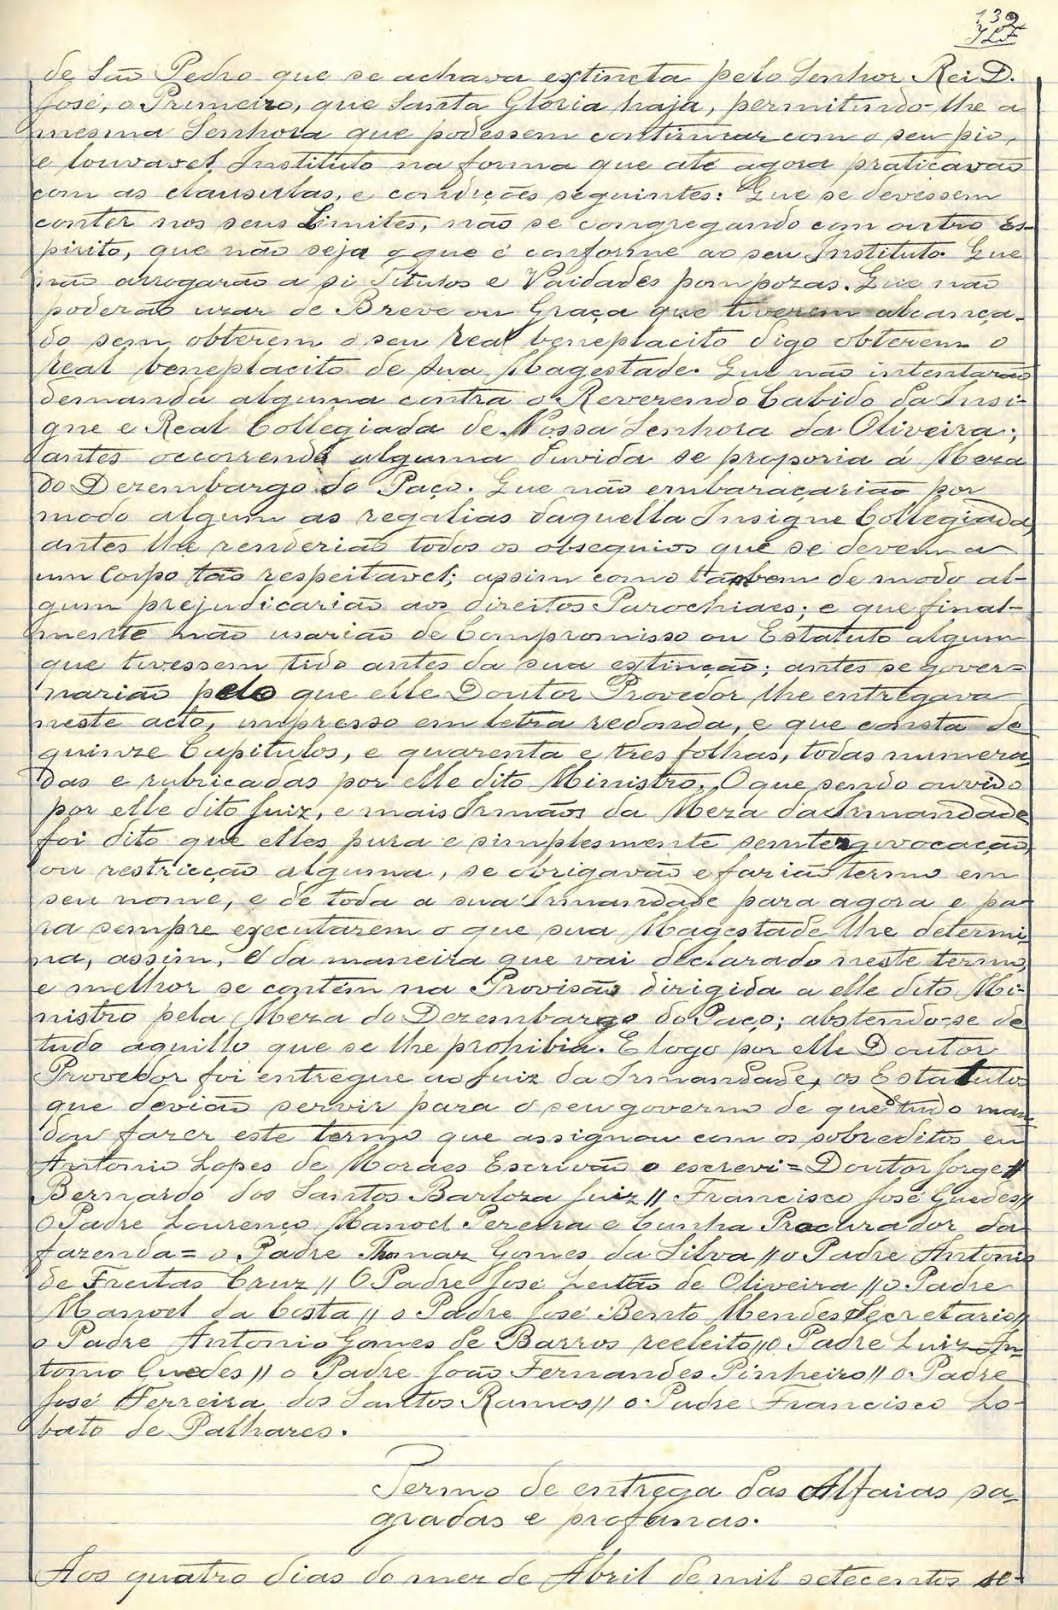 139
de São Pedro que se achava extincta pelo Senhor Rei D.
José, o Primeiro, que Santa Gloria haja, permitindo-lhe a
mesma Senhora que podessem continuar com o seu pio,
e louvavel Instituto na forma que até agora praticavão
com as clausulas, e condições seguintes: Que se devessem
conter nos seus Limites, não se congregando com outro Es-
pirito, que não seja o que é conforme ao seu Instituto. Que
não arrogarão a si Titulos e Vaidades pompozas. Que não
poderão uzar de Breve ou Graça que tiverem alcança-
do sem obterem o seu real beneplacito digo obterem o
real beneplacito de Sua Magestade. Que não intentarão
demanda alguma contra o Reverendo Cabido da Insi-
gne e Real Collegiada de Nossa Senhora da Oliveira;
antes occorrendo alguma duvida se proporia á Meza
do Dezembargo do Paço. Que não embaraçarião por
modo algum as regalias daquella Insigne Collegiada,
antes lhe renderião todos os obsequios que se devem a
um Corpo tão respeitavel; assim como tambem de modo al-
gum prejudicarião aos direitos Parochiaes; e que final-
mente não usarião de Compromisso ou Estatuto algum
que tivessem tido antes da sua extinção; antes se gover=
narião pelo que elle Doutor Provedor lhe entregava
neste acto, impresso em letra redonda, e que consta de
quinze Capitulos, e quarenta e tres folhas, todas numera
das e rubricadas por elle dito Ministro. O que sendo ouvido
por elle dito Juiz, e mais Irmãos da Meza da Irmandade
foi dito que elles pura e simplesmente sem tergivocação,
ou restricção alguma, se obrigavão e farião termo em
seu nome, e de toda a sua Irmandade para agora e pa-
ra sempre executarem o que sua Magestade lhe determi
na, assim, e da maneira que vai declarado neste termo,
e melhor se contém na Provisão dirigida a elle dito Mi-
nistro pela Meza do Dezembargo do Paço; abstendo-se de
tudo aquillo que se lhe prohibia. E logo por elle Doutor
Provedor foi entregue ao Juiz da Irmandade, os Estatutos
que devião servir para o seu governo de que tudo man-
dou fazer este termo que assignou com os sobreditos eu
Antonio Lopes de Moraes Escrivão o escrevi = Doutor Jorge //
Bernardo dos Santos Barboza Juiz // Francisco José Guedes //
O Padre Lourenço Manoel Pereira e Cunha Procurador da
fazenda = o Padre Thomaz Gomes da Silva // o Padre Antonio
de Freitas Cruz // O Padre José Leitão de Oliveira // o Padre
Manoel da Costa // o Padre José Bento Mendes Secretario //
o Padre Antonio Gomes de Barros reeleito // o Padre Luiz An-
tonio Guedes // o Padre João Fernandes Pinheiro // o Padre
José Ferreira dos Santos Ramos // o Padre Francisco Lo-
bato de Palhares.
Termo de entrega das Alfaias sa-
gradas e profanas.
Aos quatro dias do mez de Abril de mil setecentos se-